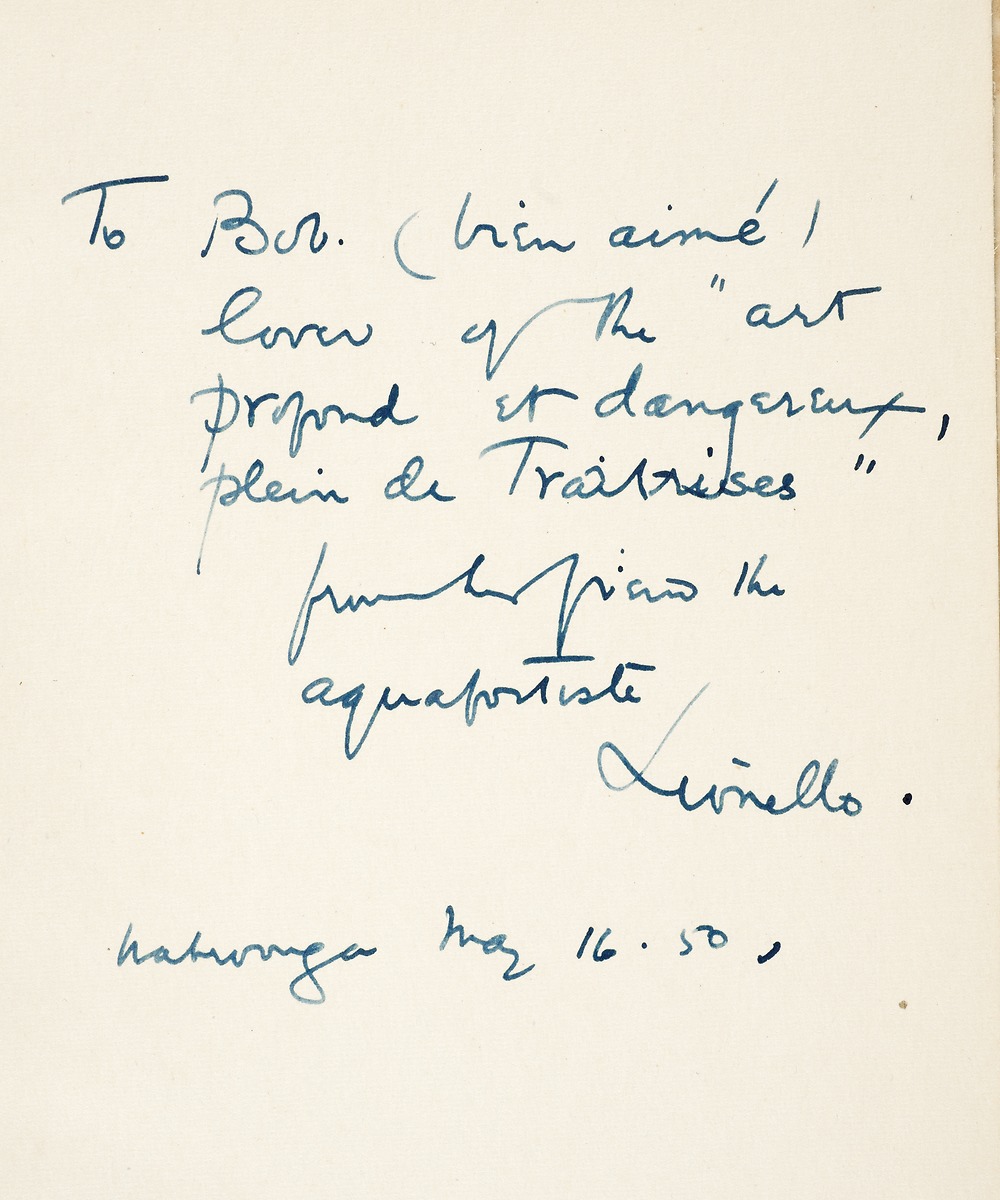 To Bob. (bien aimé)
lover of the "art
profond et dangereux,
plein de Traîtrises"
from his friend the
aquafortiste
Lionello.
Wahroonga May 16.50,